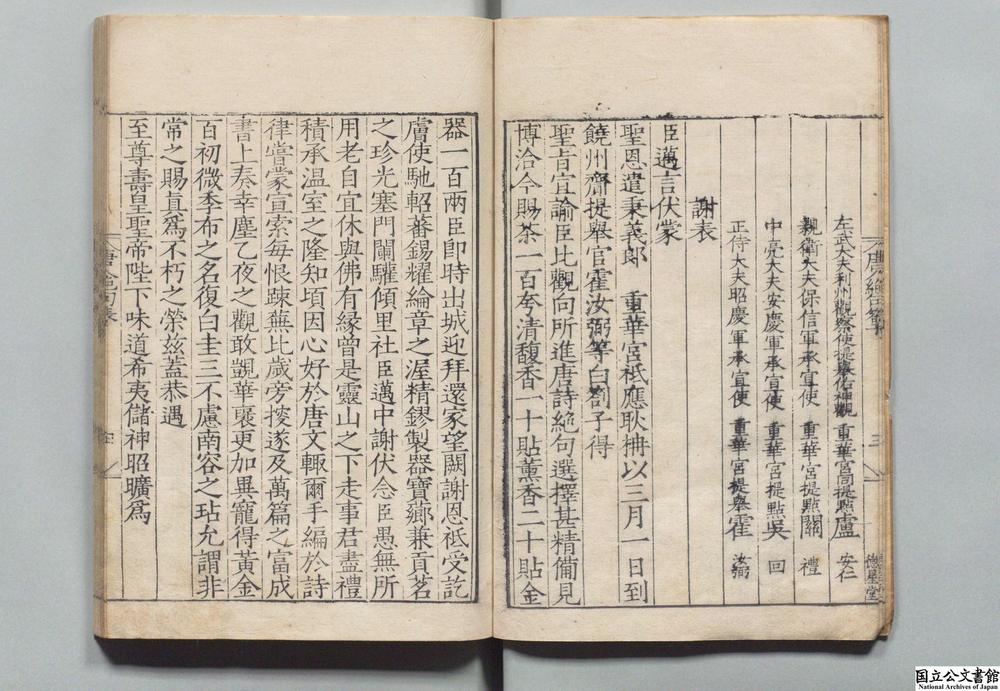 左武大夫利州觀察使提舉佑神觀重華宮同提點盧安仁
親衛大夫保信軍承宣使重華宮提點關禮
中亮大夫安慶軍承宣使重華宮提點吳回
正侍大夫昭慶軍承宣使重華宮提舉霍汝弼
謝表
臣邁言伏蒙
聖恩遣秉義郎重華宮祗應耿柟以三月一日到
饒州齎提舉官霍汝弼等白劄子得
聖旨宣諭臣比觀向所進唐詩絕句選擇甚精備見
博洽今賜茶一百夸清馥香一十貼薰香二十貼金
器一百兩臣即時出城迎拜還家望闕謝恩祗受訖
膚使馳軺蕃錫耀綸章之渥精鏐製器寶薌兼貢茗
之珍光塞門闌驩傾里社臣邁中謝伏念臣愚無所
用老自宜休與佛有緣曾是靈山之下走事君盡禮
積承溫室之隆知頃因心好於唐文輒爾手編於詩
律嘗蒙宣索每恨疎蕪比歲旁搜遂及萬篇之富成
書上奏幸塵乙夜之觀敢覬華褒更加異寵得黃金
百初微季布之名復白圭三不慮南容之玷允謂非
常之賜眞爲不朽之榮茲蓋恭遇
至尊壽皇聖帝陛下味道希夷儲神昭曠爲
三
德星堂
国立公文書館
National Archives of Japan